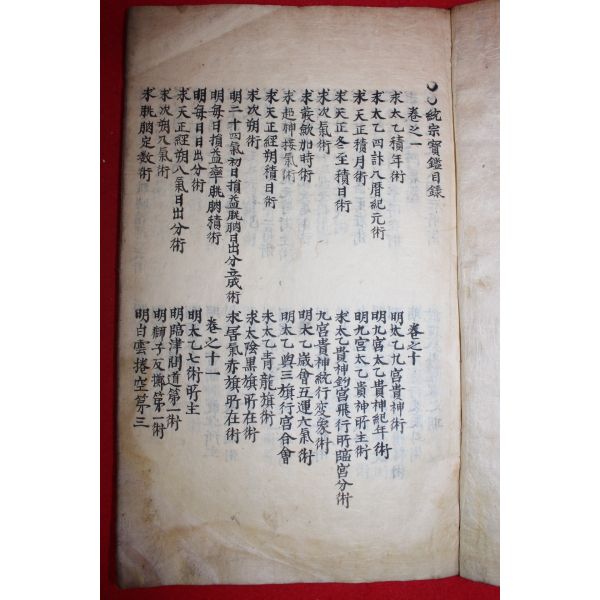 統宗寳鑑目録
卷之一
求太乙積年術
求太乙四計入曆紀元術
求天正積月術
求天正冬至積日術
求次氣術
求發斂加時術
求超神接氣術
求天正經朔積日術
求次朔術
明二十四氣初日損益朓朒日出分立成術
明每日損益率朓朒積術
明每日日出分術
求天正經朔入氣日出分術
求次朔入氣術
求朓朒定数術
卷之十
明太乙九宫貴神術
明九宫太乙貴神紀年術
明九宫太乙貴神所主術
求太乙貴神釣宫飛行所臨宫分術
九宫貴神統行変象術
明太乙歲會五運六氣術
明太乙與三旗行宫合會
求太乙青龍旗術
求太陰黑旗所在術
求害氣赤旗所在術
卷之十一
明太乙七術所主
明臨津問道第一術
明獅子反擲第一術
明白雲捲空第三